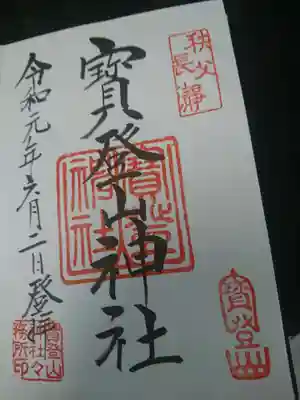 秩父
長瀞
寳登山神社
令和元年六月二日登拝
寳登山
神社
寳登山
寳登山
神社々
務所印